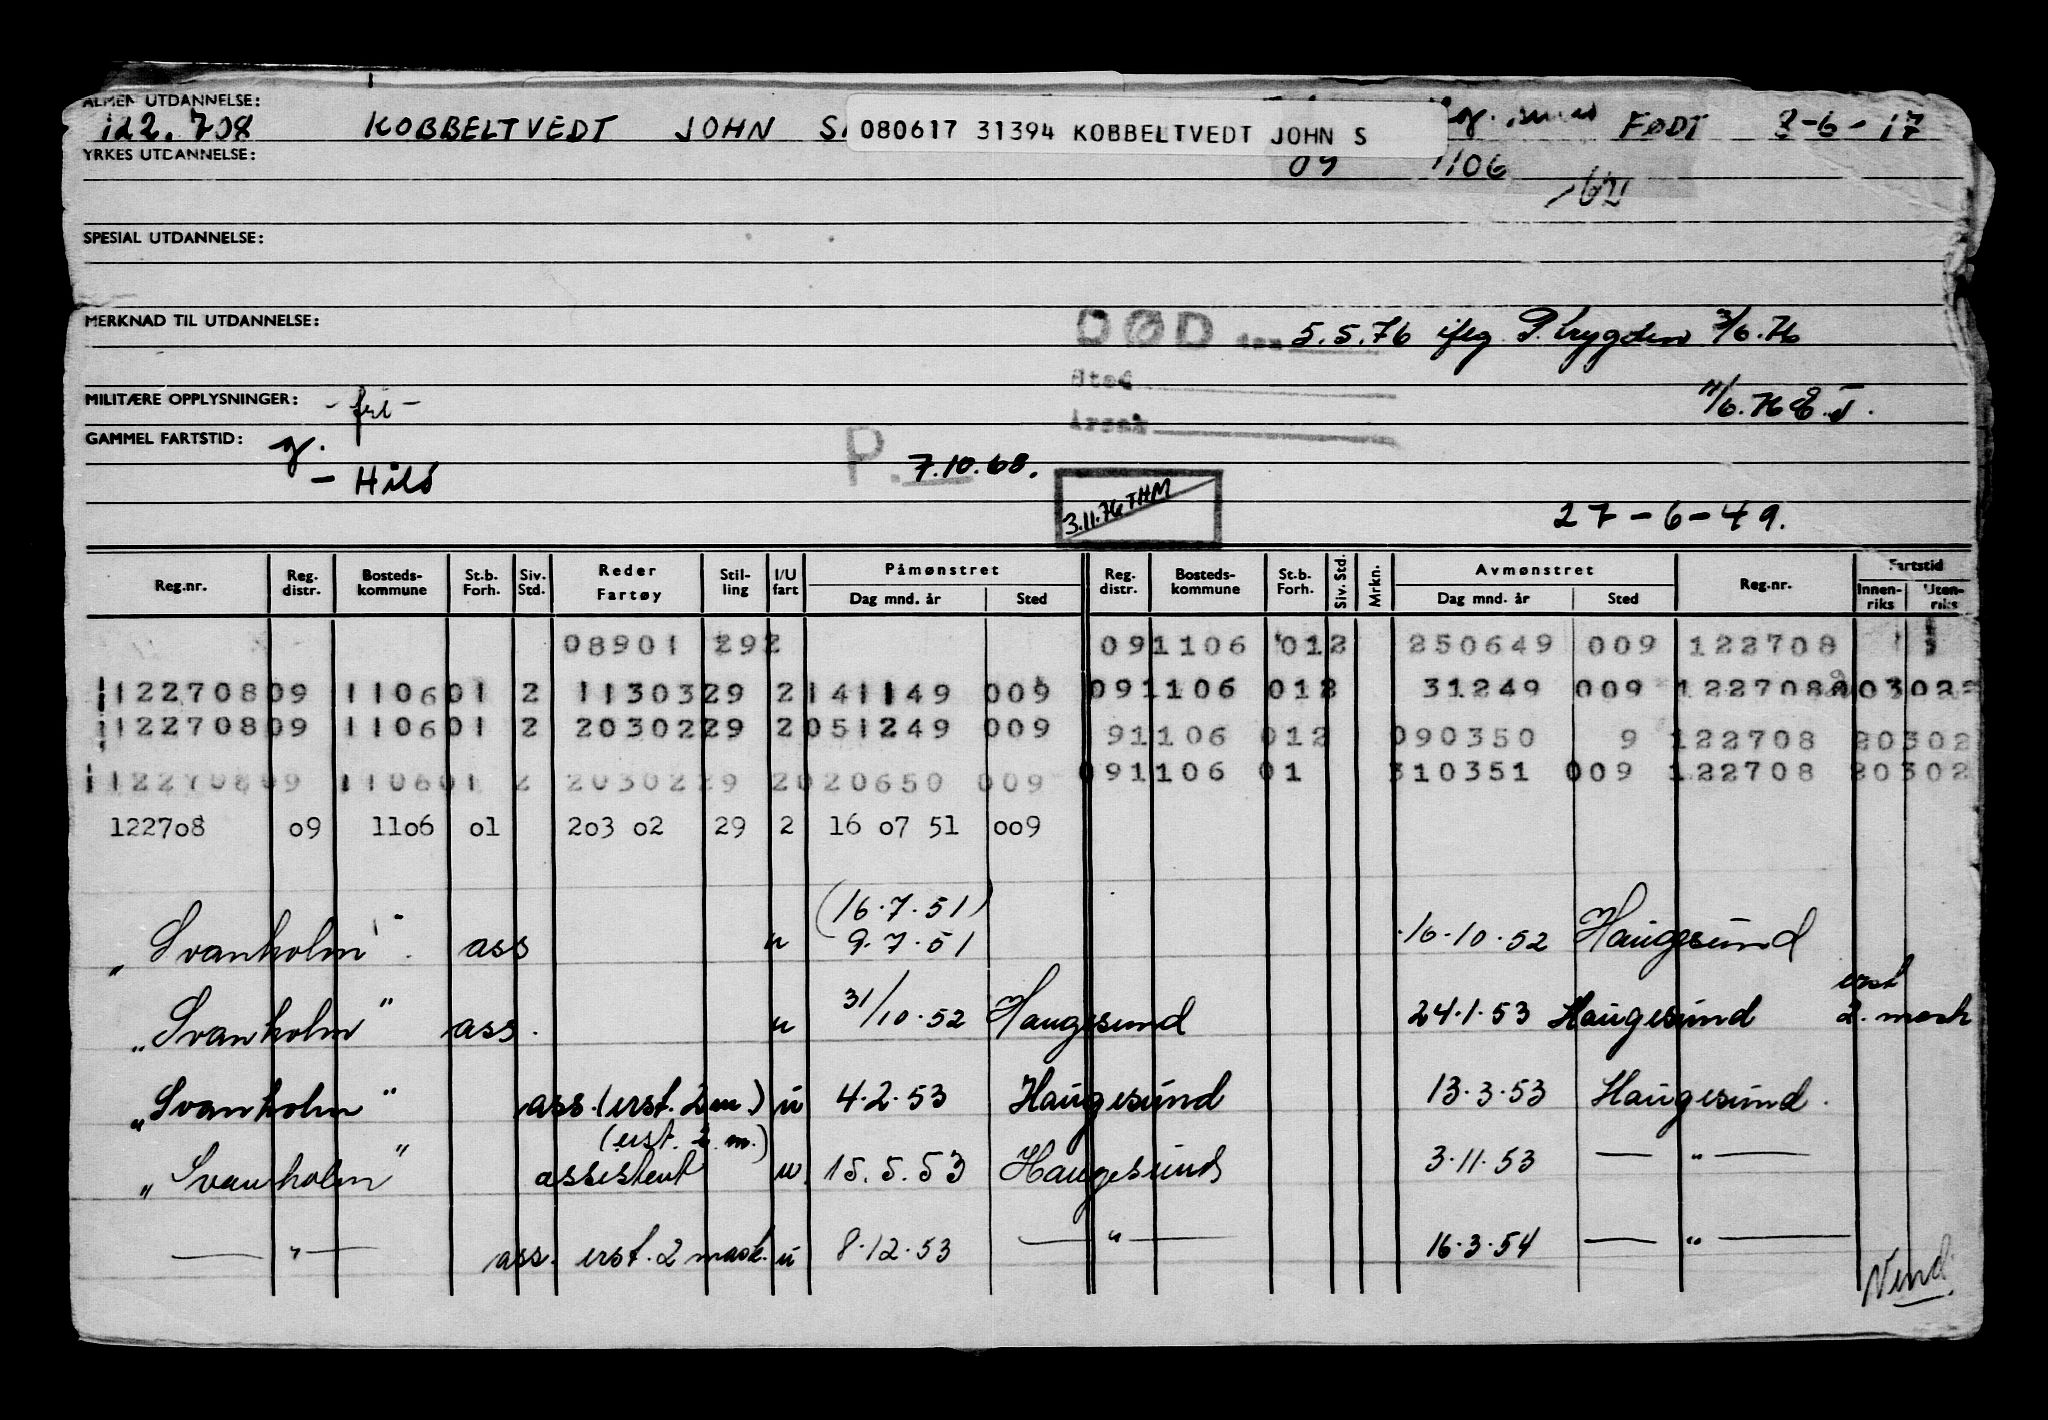 ALMEN UTDANNELSE:
122.708 KOBBELTVEDT JOHN S. 080617 31394 KOBBELTVEDT JOHN S FØDT 8-6-17
YRKES UTDANNELSE: 09 1106
SPESIAL UTDANNELSE:
MERKNAD TIL UTDANNELSE: DØD den 5.5.76 ifлg P.trygden 3/6.76
Sted
MILITÆRE OPPLYSNINGER: -fri- 11/6.76 E.T.
Årsak
GAMMEL FARTSTID: g.
- Hild P. 7.10.68.
3.11.76 THM 27-6-49.
Reg.nr. Reg. distr. Bosteds-kommune St.b. Forh. Siv. Std. Reder Fartøy Stil-ling I/U fart Påmønstret Dag mnd. år Sted Reg. distr. Bosteds-kommune St.b. Forh. Siv. Std. Mrkn. Avmønstret Dag mnd. år Sted Reg.nr. Fartstid Innen-riks Uten-riks
08901 292 091106 012 250649 009 122708
112270809 110601 2 1130329 2141149 009 091106 012 31249 009 122708
112270809 110601 2 2030229 2051249 009 91106 012 090350 9 122708 20302
112270809 110601 2 2030229 2020650 009 091106 01 310351 009 122708 20302
122708 09 1106 01 203 02 29 2 16 07 51 009
(16.7.51)
"Svanholm". ass u 9.7.51 16.10.52 Haugesund
"Svanholm" ass. u 31/10.52 Haugesund 24.1.53 Haugesund erst 2. mask
"Svanholm" ass. (erst. 2 m.) u 4.2.53 Haugesund 13.3.53 Haugesund.
(erst. 2 m.)
"Svanholm" assistent u. 15.5.53 Haugesund 3.11.53 — " —
— " — ass. erst. 2 mask. u 8.12.53 — " — 16.3.54 — " —
Vend.